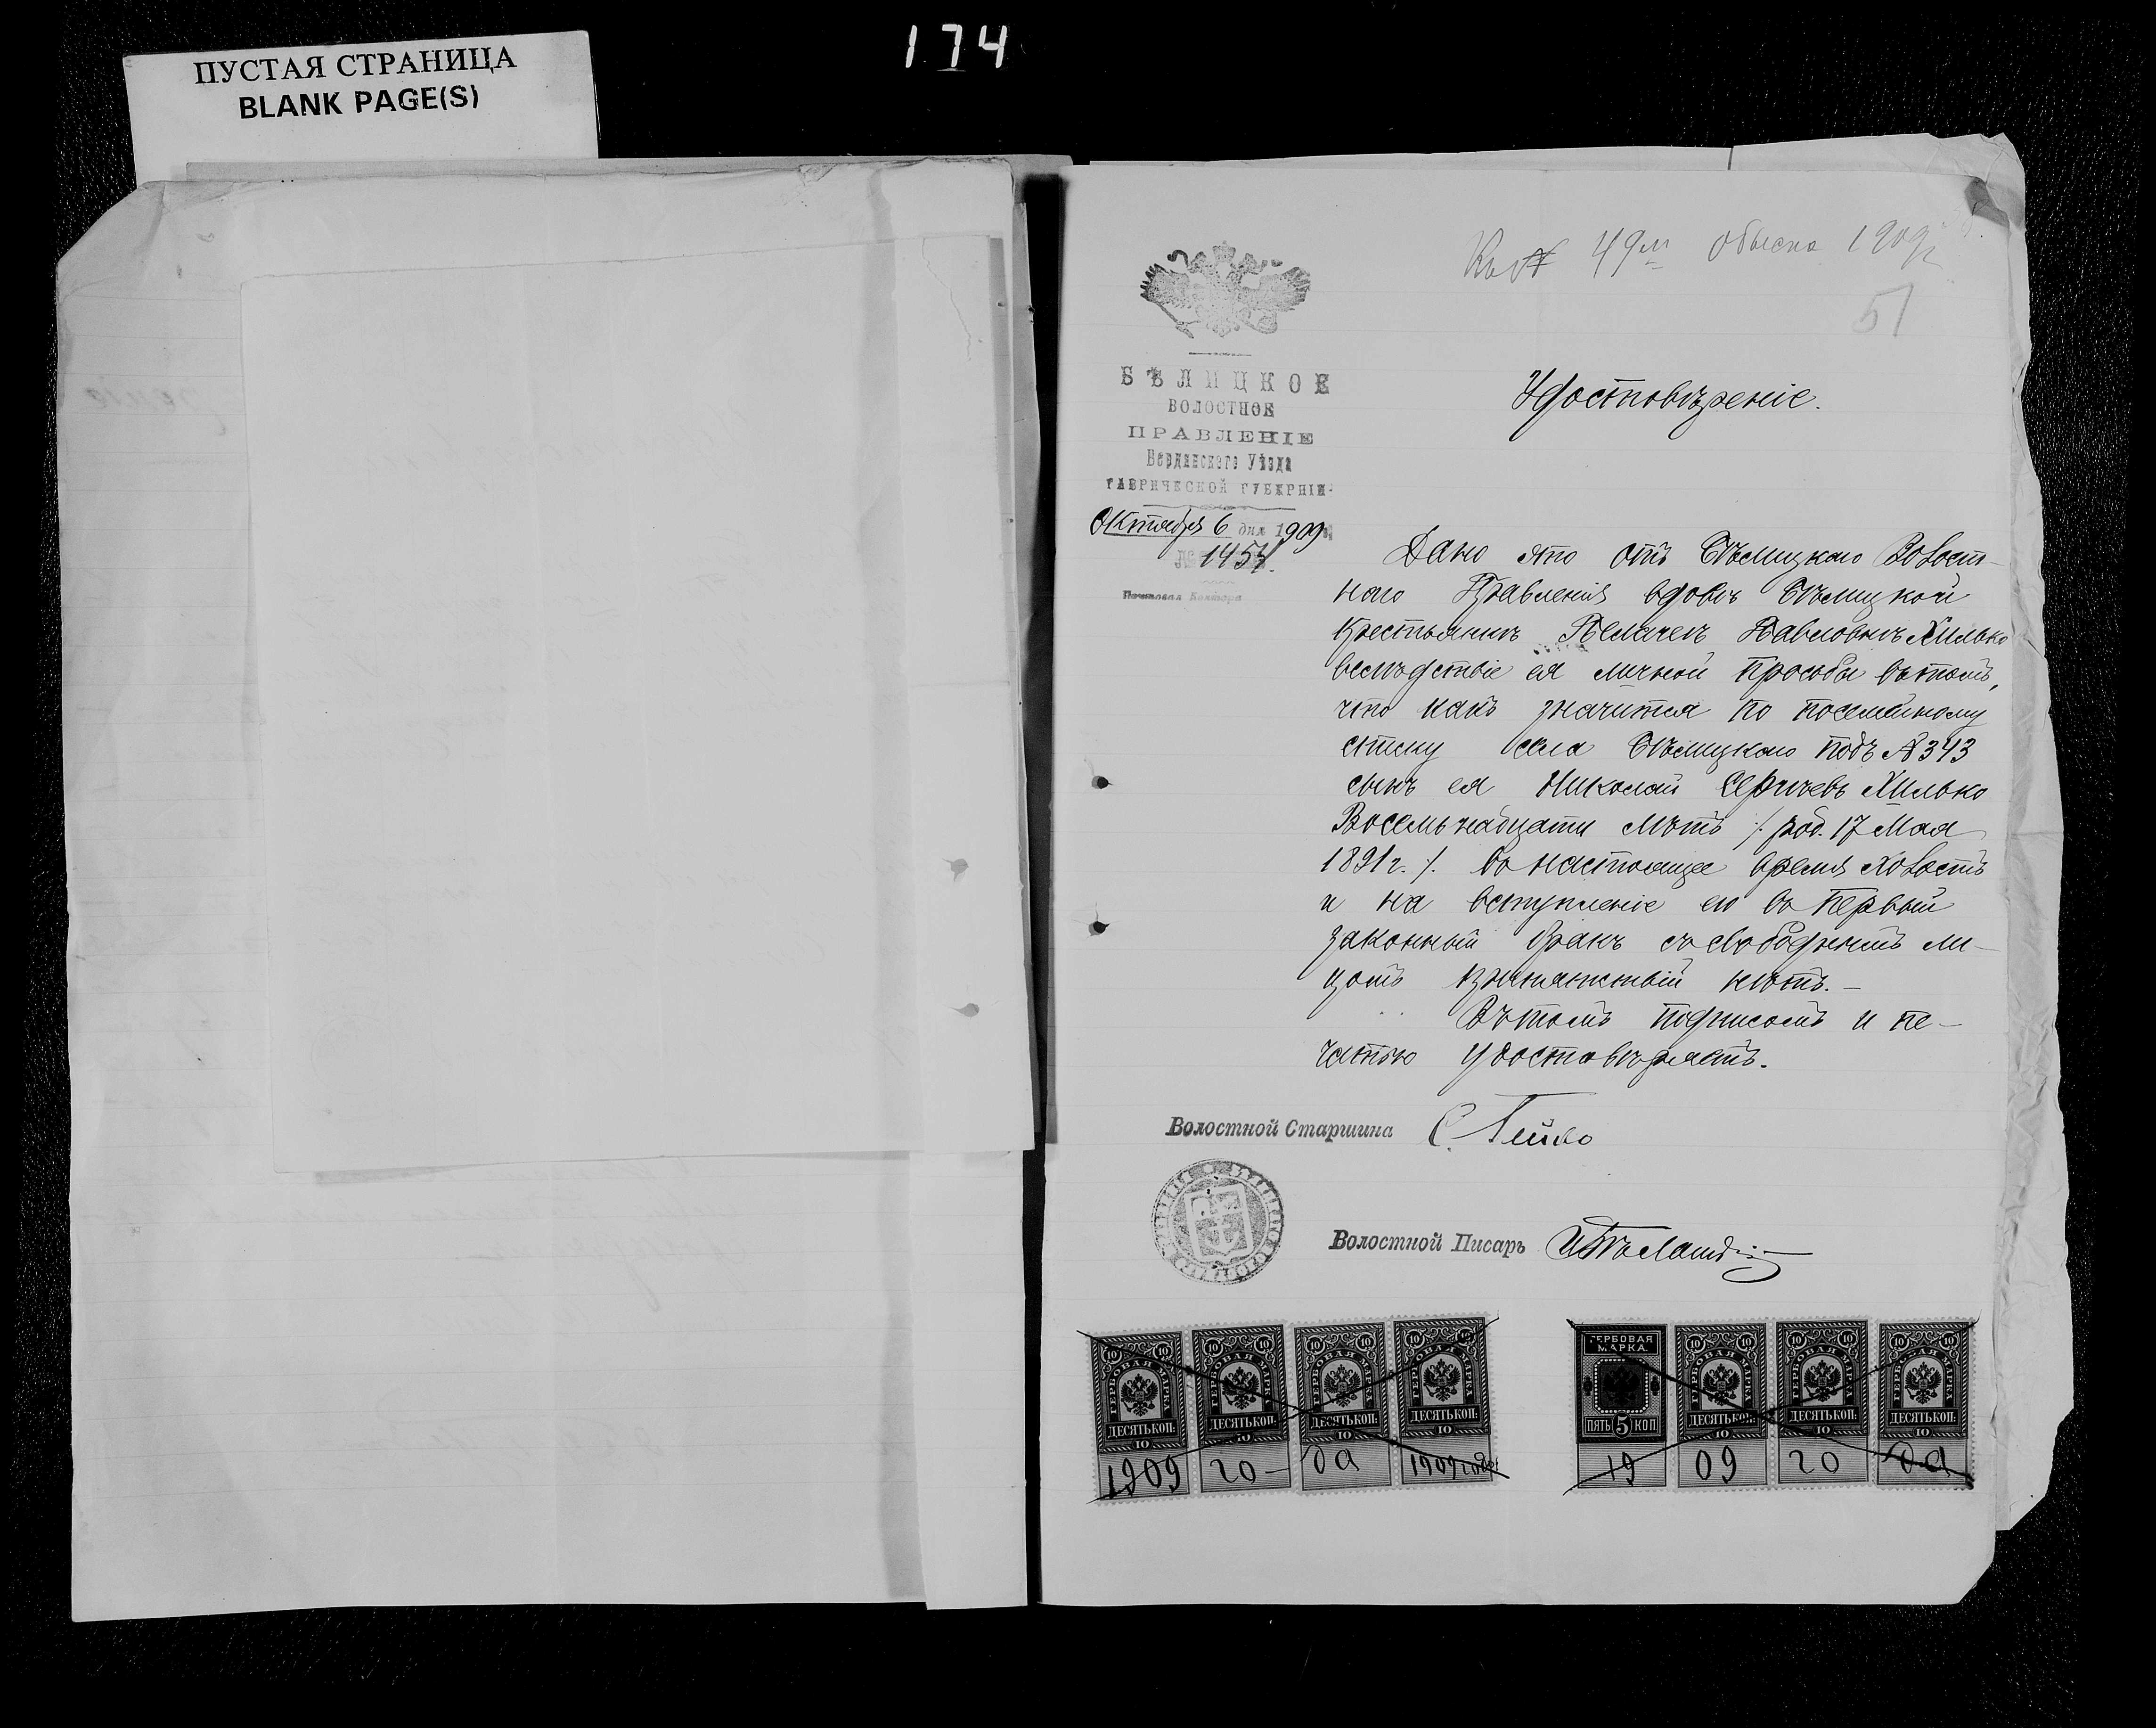 ПУСТАЯ СТРАНИЦА
BLANK PAGE(S)
174
Къ № 49му обыска 1909г
51
БѢЛИЦКОЕ
ВОЛОСТНОЕ
ПРАВЛЕНІЕ
Бердянскаго Уѣзда
ТАВРИЧЕСКОЙ ГУБЕРНІИ.
Октября 6 дня 1909
№ 1454.
Почтовая Контора
Удостовѣреніе.
Дано это отъ Бѣлицкаго Волост-
наго Правленія вдовѣ Бѣлицкой
крестьянкѣ Пелагеѣ Павловнѣ Хилько
вслѣдствіе ея личной просьбы въ томъ,
что какъ значится по посемейному
списку села Бѣлицкаго подъ № 343
сынъ ея Николай Сергѣевъ Хилько
Восемьнадцати лѣтъ /. род. 17 Мая
1891 г. /. въ настоящее время холостъ
и на вступленіе его въ первый
законный бракъ со свободнымъ ли-
цомъ препятствій нѣтъ. –
Въ томъ подписомъ и пе-
чатью удостовѣряетъ.
Волостной Старшина С.
Волостной Писарь
ГЕРБОВАЯ МАРКА ДЕСЯТЬ КОП. 10
ГЕРБОВАЯ МАРКА ДЕСЯТЬ КОП. 10
ГЕРБОВАЯ МАРКА ДЕСЯТЬ КОП. 10
ГЕРБОВАЯ МАРКА ДЕСЯТЬ КОП. 10
1909 го- да 1909 года
ГЕРБОВАЯ МАРКА ПЯТЬ 5 КОП
ГЕРБОВАЯ МАРКА ДЕСЯТЬ КОП. 10
ГЕРБОВАЯ МАРКА ДЕСЯТЬ КОП. 10
ГЕРБОВАЯ МАРКА ДЕСЯТЬ КОП. 10
19 09 го да